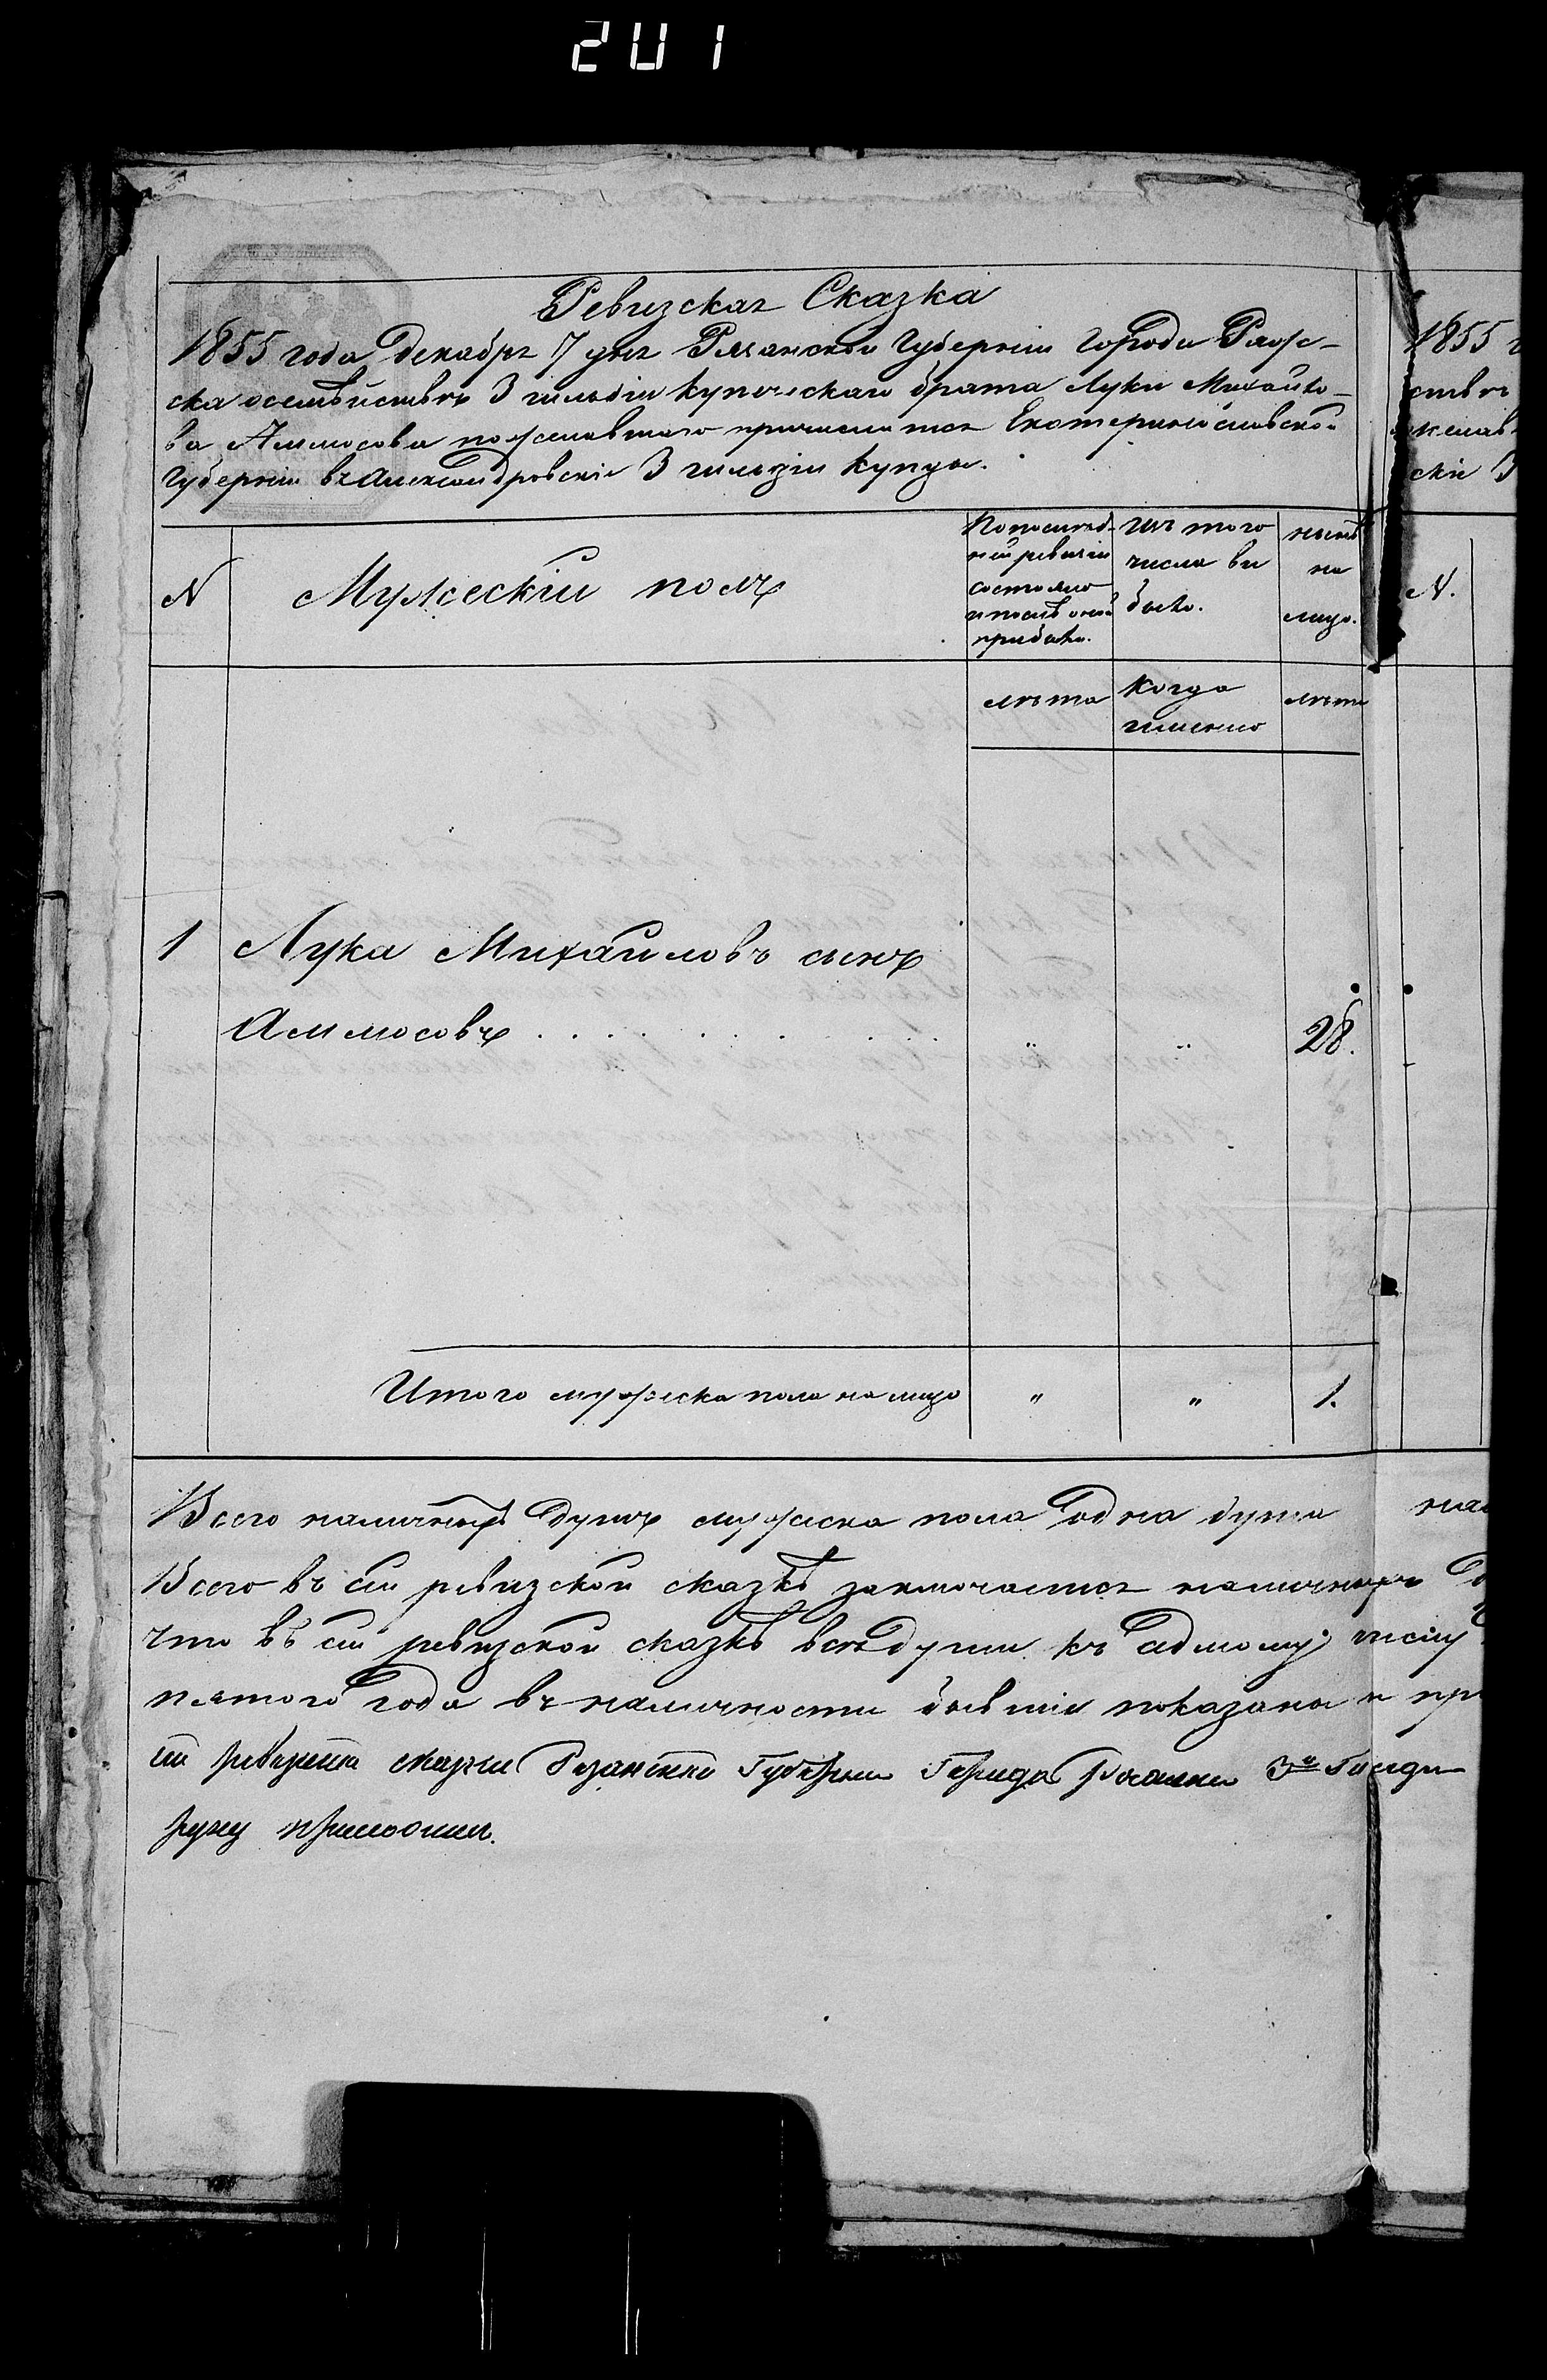 201
Ревизская Сказка
1855 года декабря 7 дня Рязанской Губерніи Города Ряжс-
ка осемѣйствѣ 3 гильдіи купеческаго брата Луки Михайло-
ва Аммосова пожелавшаго причислится Екатеринославской
Губерніи въ Александровскіе 3 гильдіи купцы.
N
Мужескій полъ
По послѣд-
ней ревизіи
состояло
и послѣ оной
прибыло.
Изъ того
числа вы
было.
нынѣ
на
лицо.
лѣта
Когда
именно
лѣта
1 Лука Михайловъ сынъ
Аммосовъ . . . . . . . . . " " 28.
Итого мужеска пола на лицо " " 1.
Всего наличныхъ душъ мужеска пола одна душа
Всего въ сей ревизской сказкѣ заключается наличныхъ
что въ сей ревизской сказкѣ всѣ души къ числу
пятого года въ наличности бывшіе показаны и
сей ревизской скаски Рязанской Губернии Города 3й Гилди
руку приложилъ.
1855
ствѣ
желав
скіе 3
N.